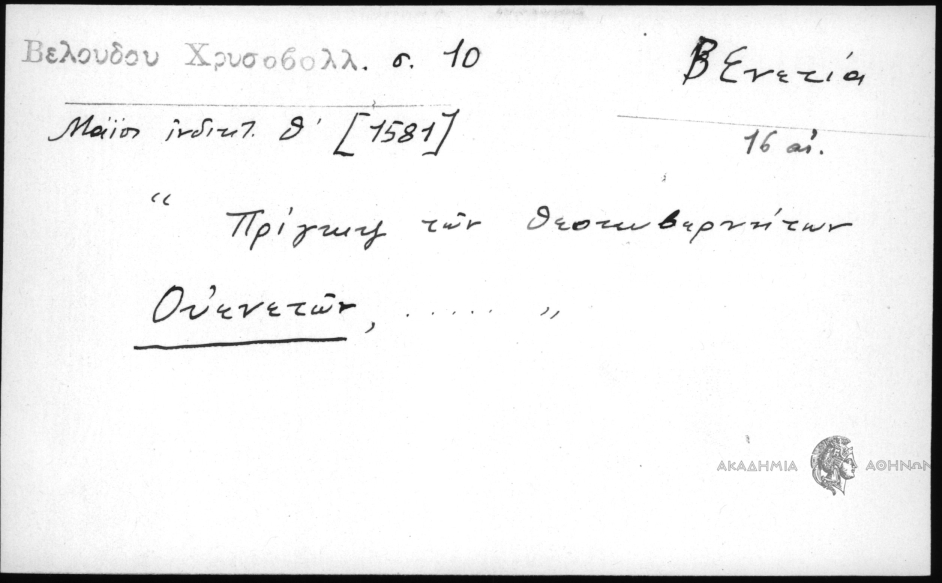 Βελουδου Χρυσοβολλ. σ. 10
Βενετία
Μάϊος ἰνδικτ. θ' [1581]
16 αἰ.
“ Πρίγκιψ τῶν θεοκυβερνήτων
Οὐενετῶν, ..... ”
ΑΚΑΔΗΜΙΑ ΑΘΗΝΩΝ